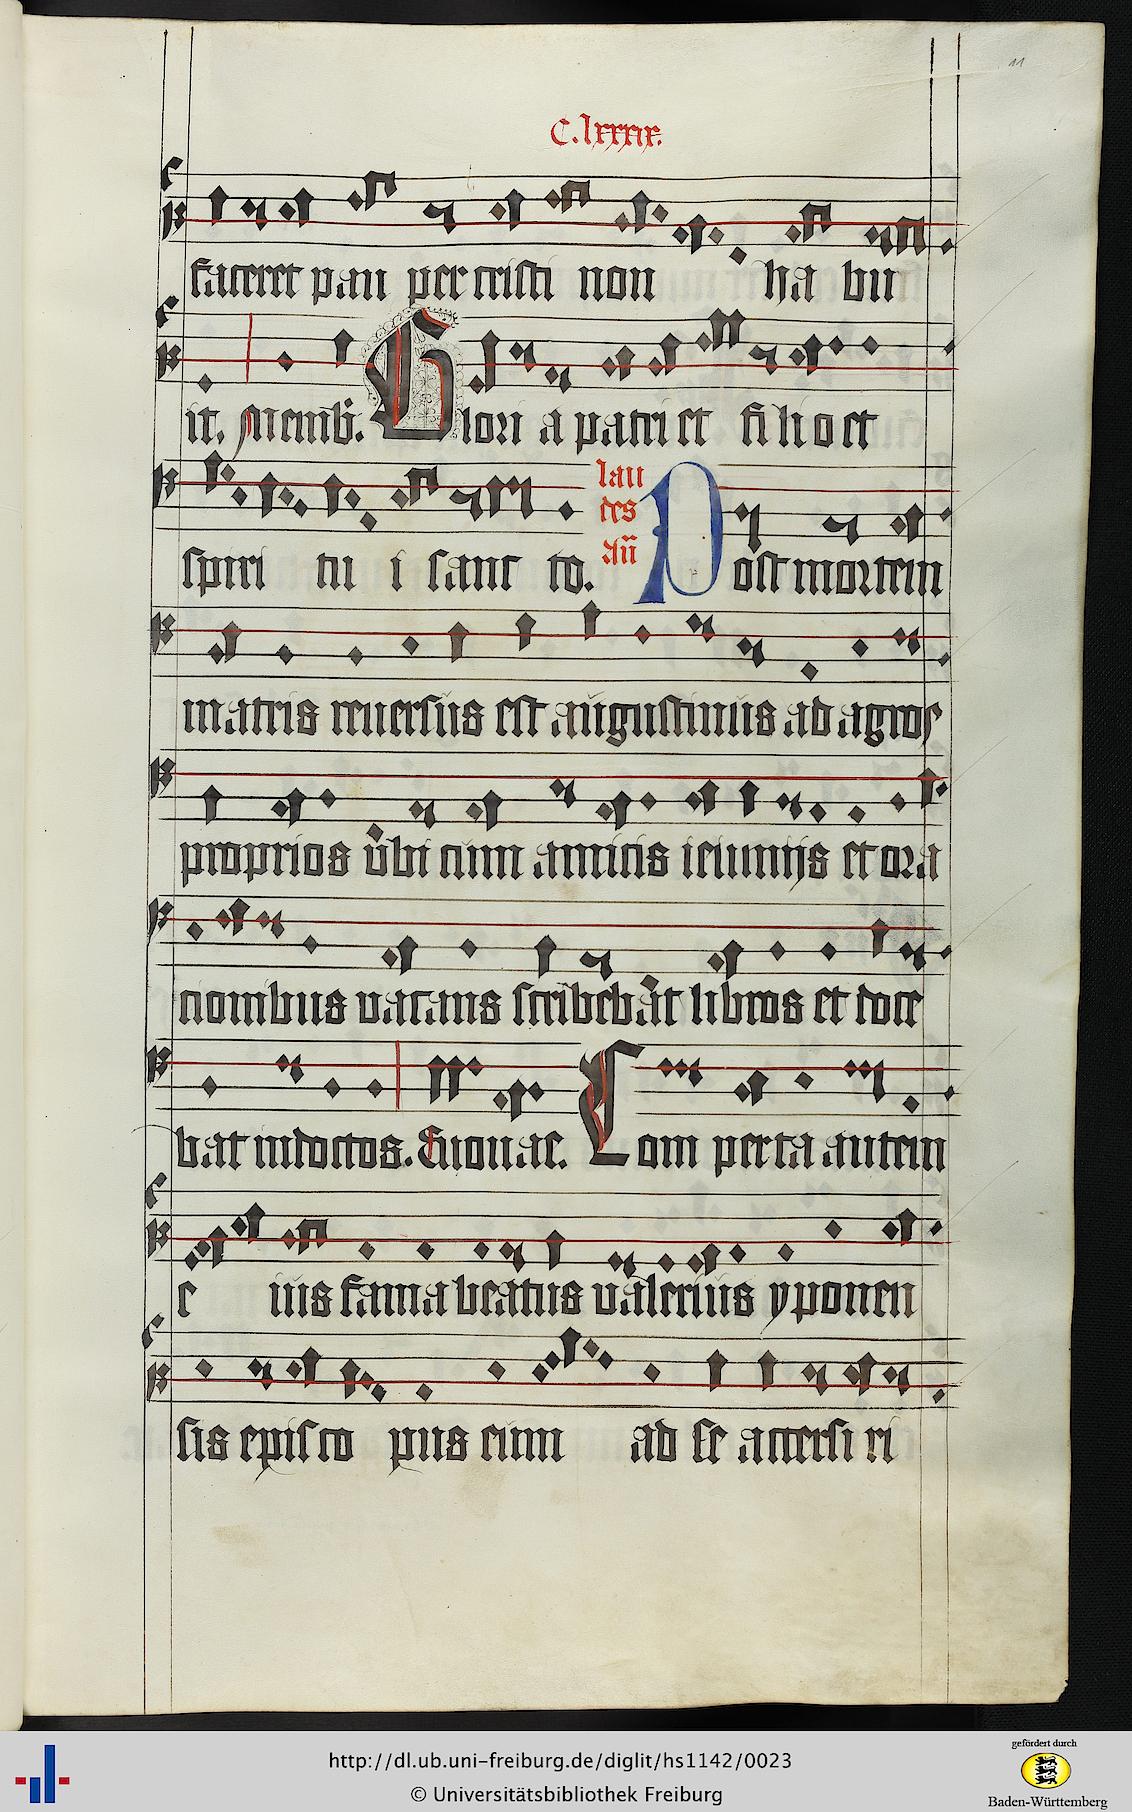 11
C.lxxxix.
faceret pau per cristi non ha bu
it. Memb̄. Glori a patri et fi lio et
spiri tu i sanc to. lau
des
an̄ Post mortem
matris reuersus est augustinus ad agros
proprios ubi cum amicis ieiuniis et ora
cionibus uacans scribebat libros et doce
bat indoctos. Euouae. Com perta autem
e ius fama beatus ualerius yponen
sis episco pus eum ad se accersi ri
http://dl.ub.uni-freiburg.de/diglit/hs1142/0023
© Universitätsbibliothek Freiburg
gefördert durch
Baden-Württemberg